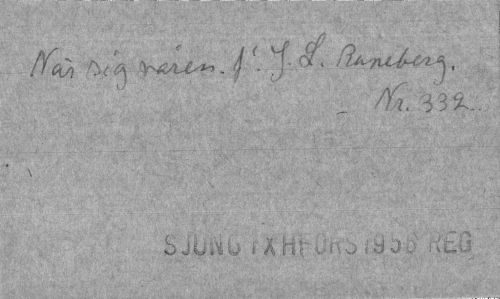 När sig våren. J. L. Runeberg.
Nr. 332.
SJUNG IX HFORS 1956 REG